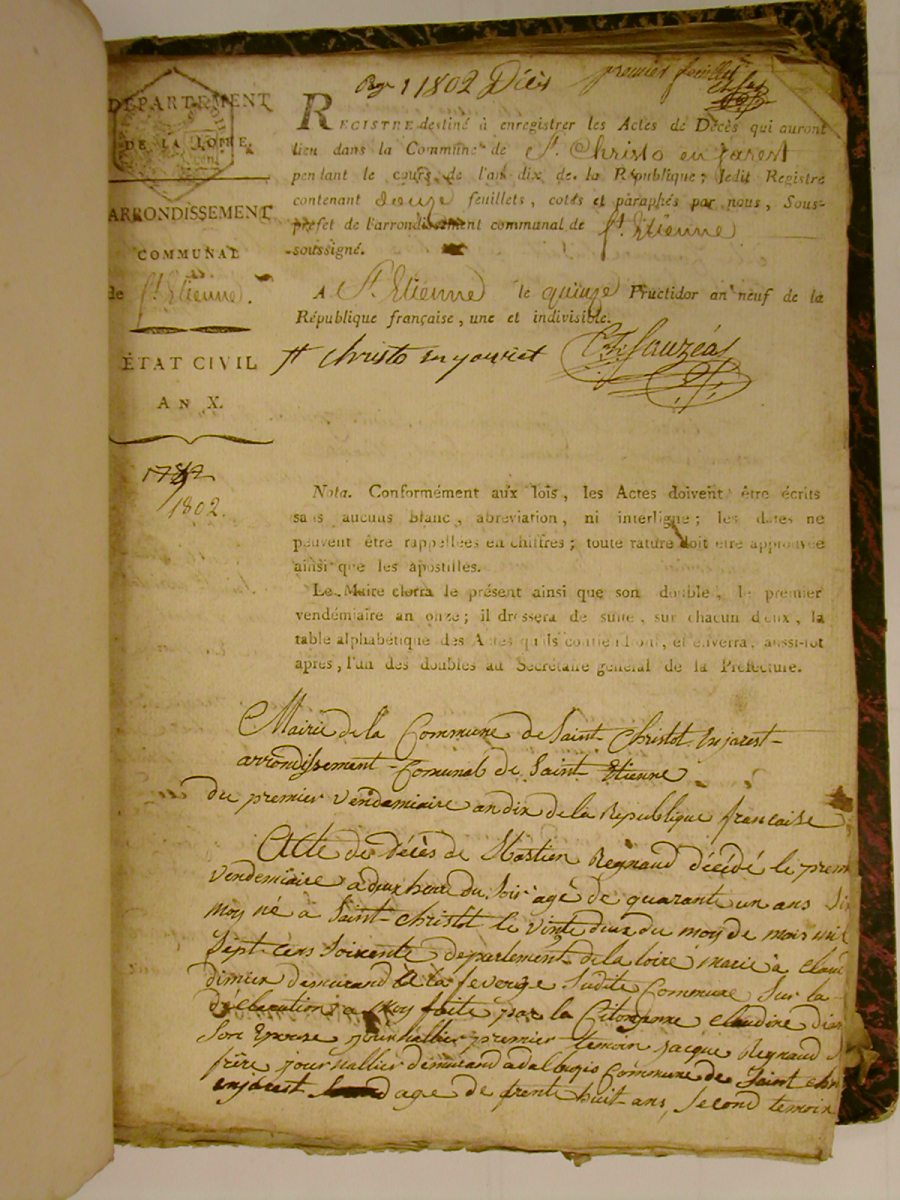 Reg 1 1802 Décès premier feuillet
DÉPARTEMENT
DE LA LOIRE.
ARRONDISSEMENT
COMMUNAL
de St. Etienne.
ÉTAT CIVIL
AN X.
1802.
REGISTRE destiné à enregistrer les Actes de Décès qui auront
lieu dans la Commune de St. Christo en jarest
pendant le cours de l'an dix de la République; ledit Registre
contenant douze feuillets, cotés et paraphés par nous, Sous-
préfet de l'arrondissement communal de St. Etienne
soussigné.
A St. Etienne le quinze Fructidor an neuf de la
République française, une et indivisible.
St christo en jarest Sauzéa
Nota. Conformément aux lois, les Actes doivent être écrits
sans aucuns blanc, abreviation, ni interligne; les dates ne
peuvent être rappellées en chiffres; toute rature doit etre approuvée
ainsi que les apostilles.
Le Maire clorra le présent ainsi que son double, le premier
vendémiaire an onze; il dressera de suite, sur chacun d'eux, la
table alphabétique des Actes qu'ils contiendront, et enverra, aussi-tot
après, l'un des doubles au Secrétaire général de la Préfecture.
Mairie de la Commune de Saint Christot Enjarest
arrondissement Comunal de Saint Etienne
du premier vendemiaire an dix de la Republique francaise
Acte de Décès de Hastien Reynaud décédé le prem
vendemiaire a deux heure du soir agé de quarante un ans Six
moy né à Saint-christot le vinte deux du moy de mars mil
Sept cens soixente departement de la loire marié à claud
dimier demurand a la feverge Sudite Commune Sur la
déclaration a moy faite par la Citoyenne claudine dim
son Epouse journallier premier temoin jacque Reynaud s
frère journallier demurand Commune de Saint chri
enjarest age de trente huit ans, second temoin